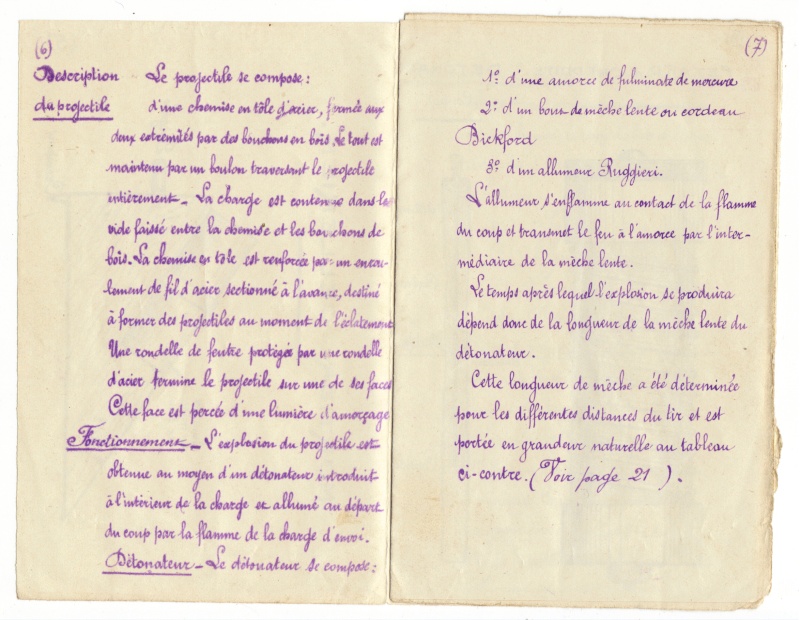 (6)
Description Le projectile se compose :
du projectile d'une chemise en tôle d'acier, fermée aux
deux extrémités par des bouchons en bois. Le tout est
maintenu par un boulon traversant le projectile
entièrement _ La charge est contenue dans le
vide laissé entre la chemise et les bouchons de
bois. La chemise en tôle est renforcée par un enrou-
lement de fil d'acier sectionné à l'avance, destiné
à former des projectiles au moment de l'éclatement
Une rondelle de feutre protégée par une rondelle
d'acier termine le projectile sur une de ses faces
Cette face est percée d'une lumière d'amorçage
Fonctionnement _ L'explosion du projectile est
obtenue au moyen d'un détonateur introduit
à l'intérieur de la charge et allumé au départ
du coup par la flamme de la charge d'envoi.
Détonateur _ Le détonateur se compose :
(7)
1º d'une amorce de fulminate de mercure
2º d'un bout de mèche lente ou cordeau
Bickford
3º d'un allumeur Ruggieri.
L'allumeur s'enflamme au contact de la flamme
du coup et transmet le feu à l'amorce par l'inter-
médiaire de la mèche lente.
Le temps après lequel l'explosion se produira
dépend donc de la longueur de la mèche lente du
détonateur.
Cette longueur de mèche a été déterminée
pour les différentes distances du tir et est
portée en grandeur naturelle au tableau
ci-contre. (Voir page 21 ).